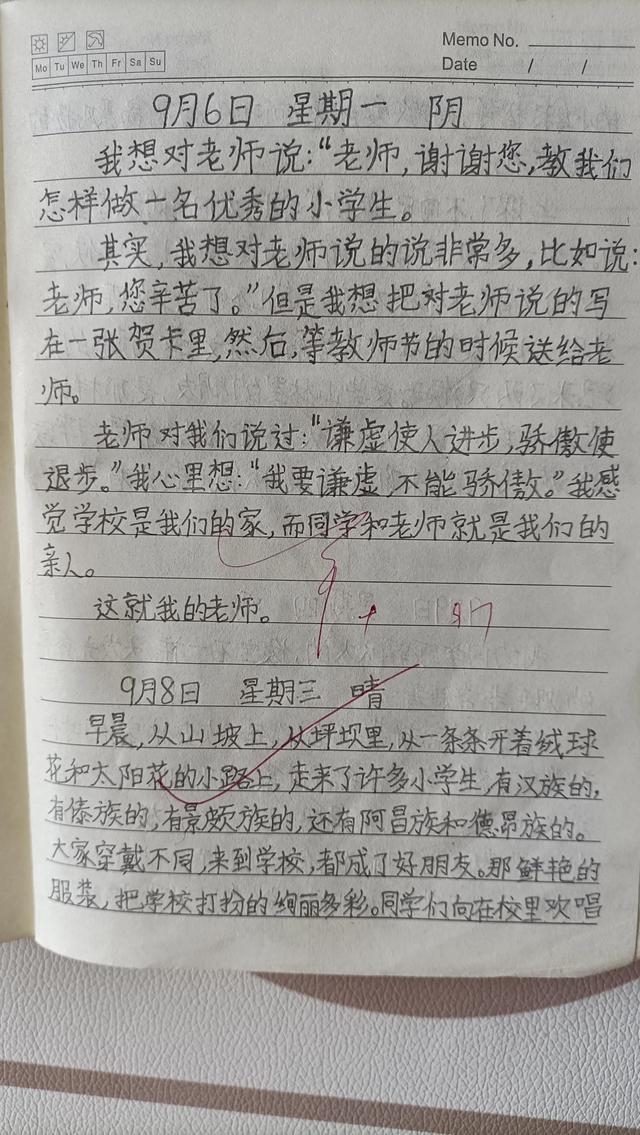 Memo No.
Mo Tu We Th Fr Sa Su
Date / /
9月6日 星期一 阴
我想对老师说:“老师,谢谢您,教我们
怎样做一名优秀的小学生。
其实,我想对老师说的说非常多,比如说:
老师,您辛苦了。”但是我想把对老师说的写
在一张贺卡里,然后,等教师节的时候送给老
师。
老师对我们说过:“谦虚使人进步,骄傲使
退步。”我心里想:“我要谦虚,不能骄傲。”我感
觉学校是我们的家,而同学和老师就是我们的
亲人。
这就我的老师。
9月8日 星期三 晴
早晨,从山坡上,从坪坝里,从一条条开着绒球
花和太阳花的小路上,走来了许多小学生,有汉族的,
有傣族的,有景颇族的,还有阿昌族和德昂族的。
大家穿戴不同,来到学校,都成了好朋友。那鲜艳的
服装,把学校打扮的绚丽多彩。同学们向在校里欢唱